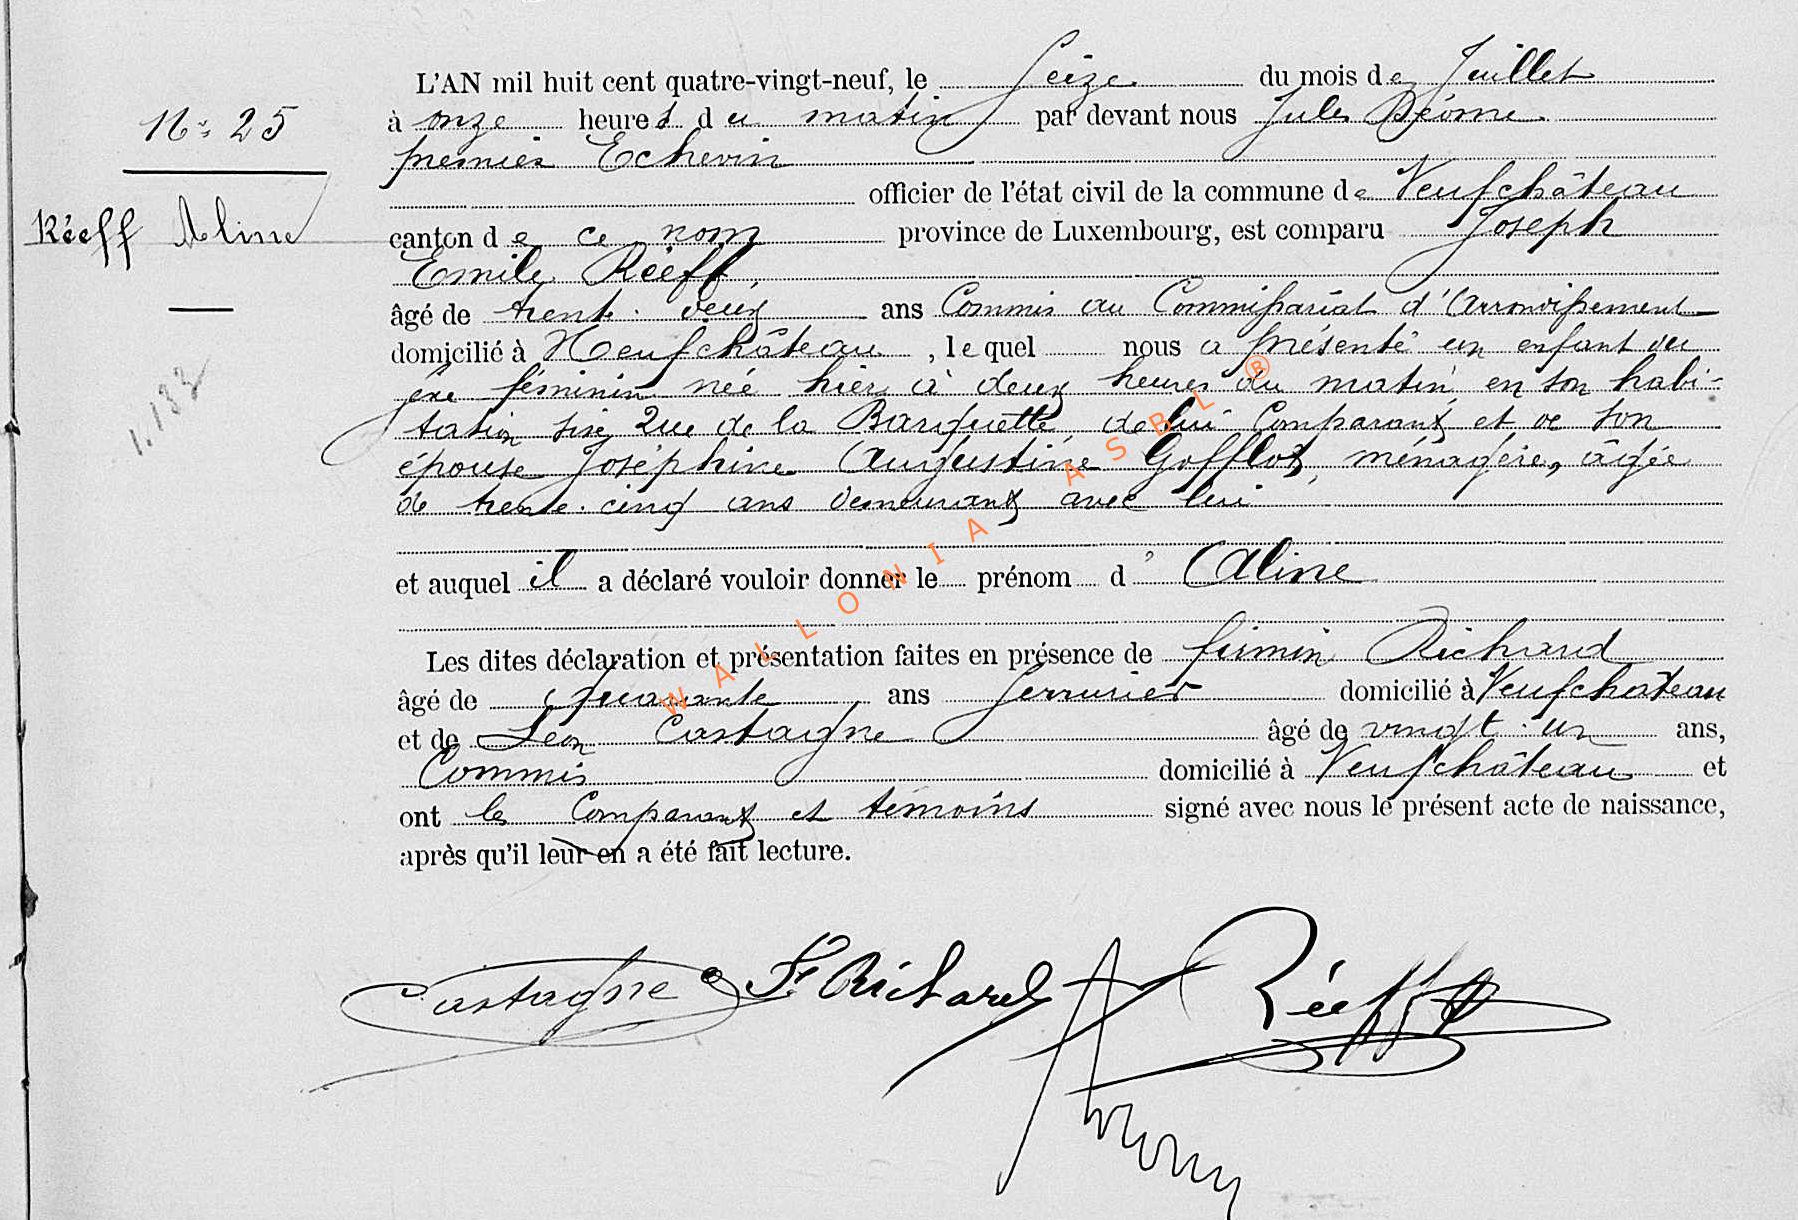 L'AN mil huit cent quatre-vingt-neuf, le Seize du mois de Juillet
N° 25
à onze heures du matin par devant nous Jules
premier Echevin
officier de l'état civil de la commune de Neufchâteau
Réeff Aline
canton de ce nom province de Luxembourg, est comparu Joseph
Emile Réeff,
âgé de trente-deux ans Commis au Commissariat d'Arrondissement
domicilié à Neufchâteau, lequel nous a présenté un enfant du
sexe féminin née hier à deux heures du matin, en son habi-
1.133
tation sise Rue de la Barquette, de lui Comparant et de son
épouse Joséphine Augustine Gofflot, ménagère, âgée
de trente-cinq ans demeurant avec lui
et auquel il a déclaré vouloir donner le prénom d'Aline
Les dites déclaration et présentation faites en présence de Firmin Richard
âgé de quarante ans Serrurier domicilié à Neufchâteau
et de Léon Castaigne âgé de vingt-un ans,
Commis domicilié à Neufchâteau et
ont les Comparant et témoins signé avec nous le présent acte de naissance,
après qu'il leur en a été fait lecture.
WALLONIA ASBL ®
Castaigne F. Richard Réeff